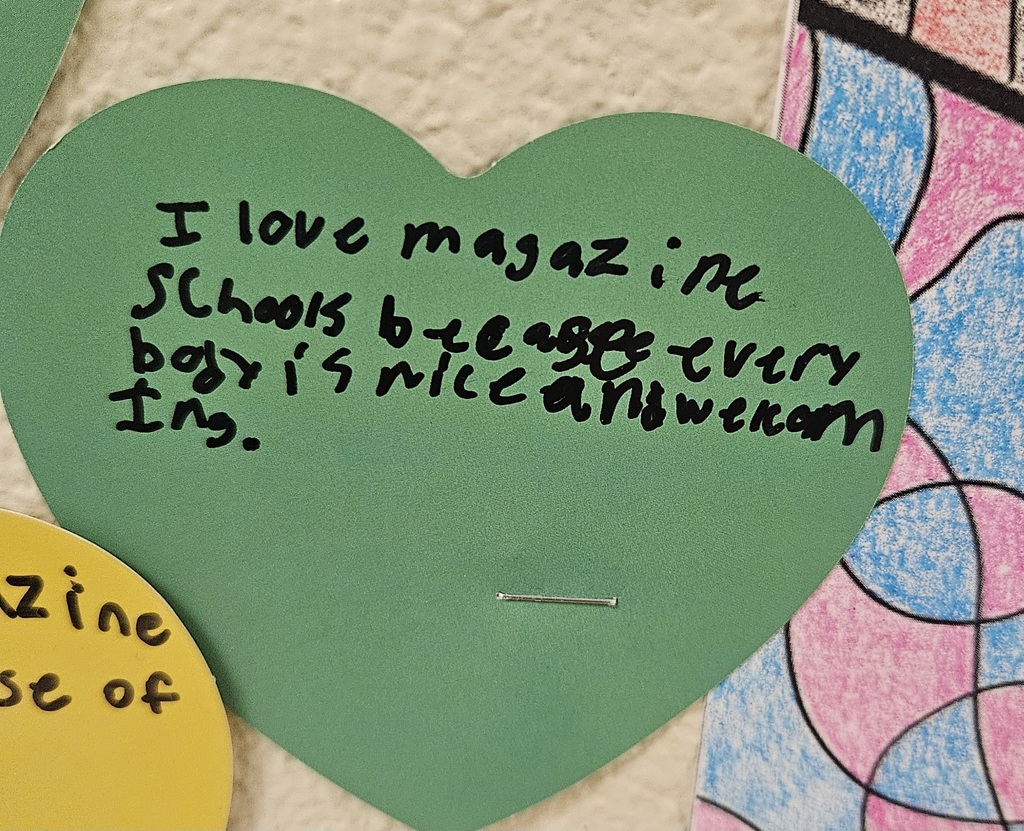 I love magazine
Schools because every
body is nice and welcom
Ing.
azine
se of